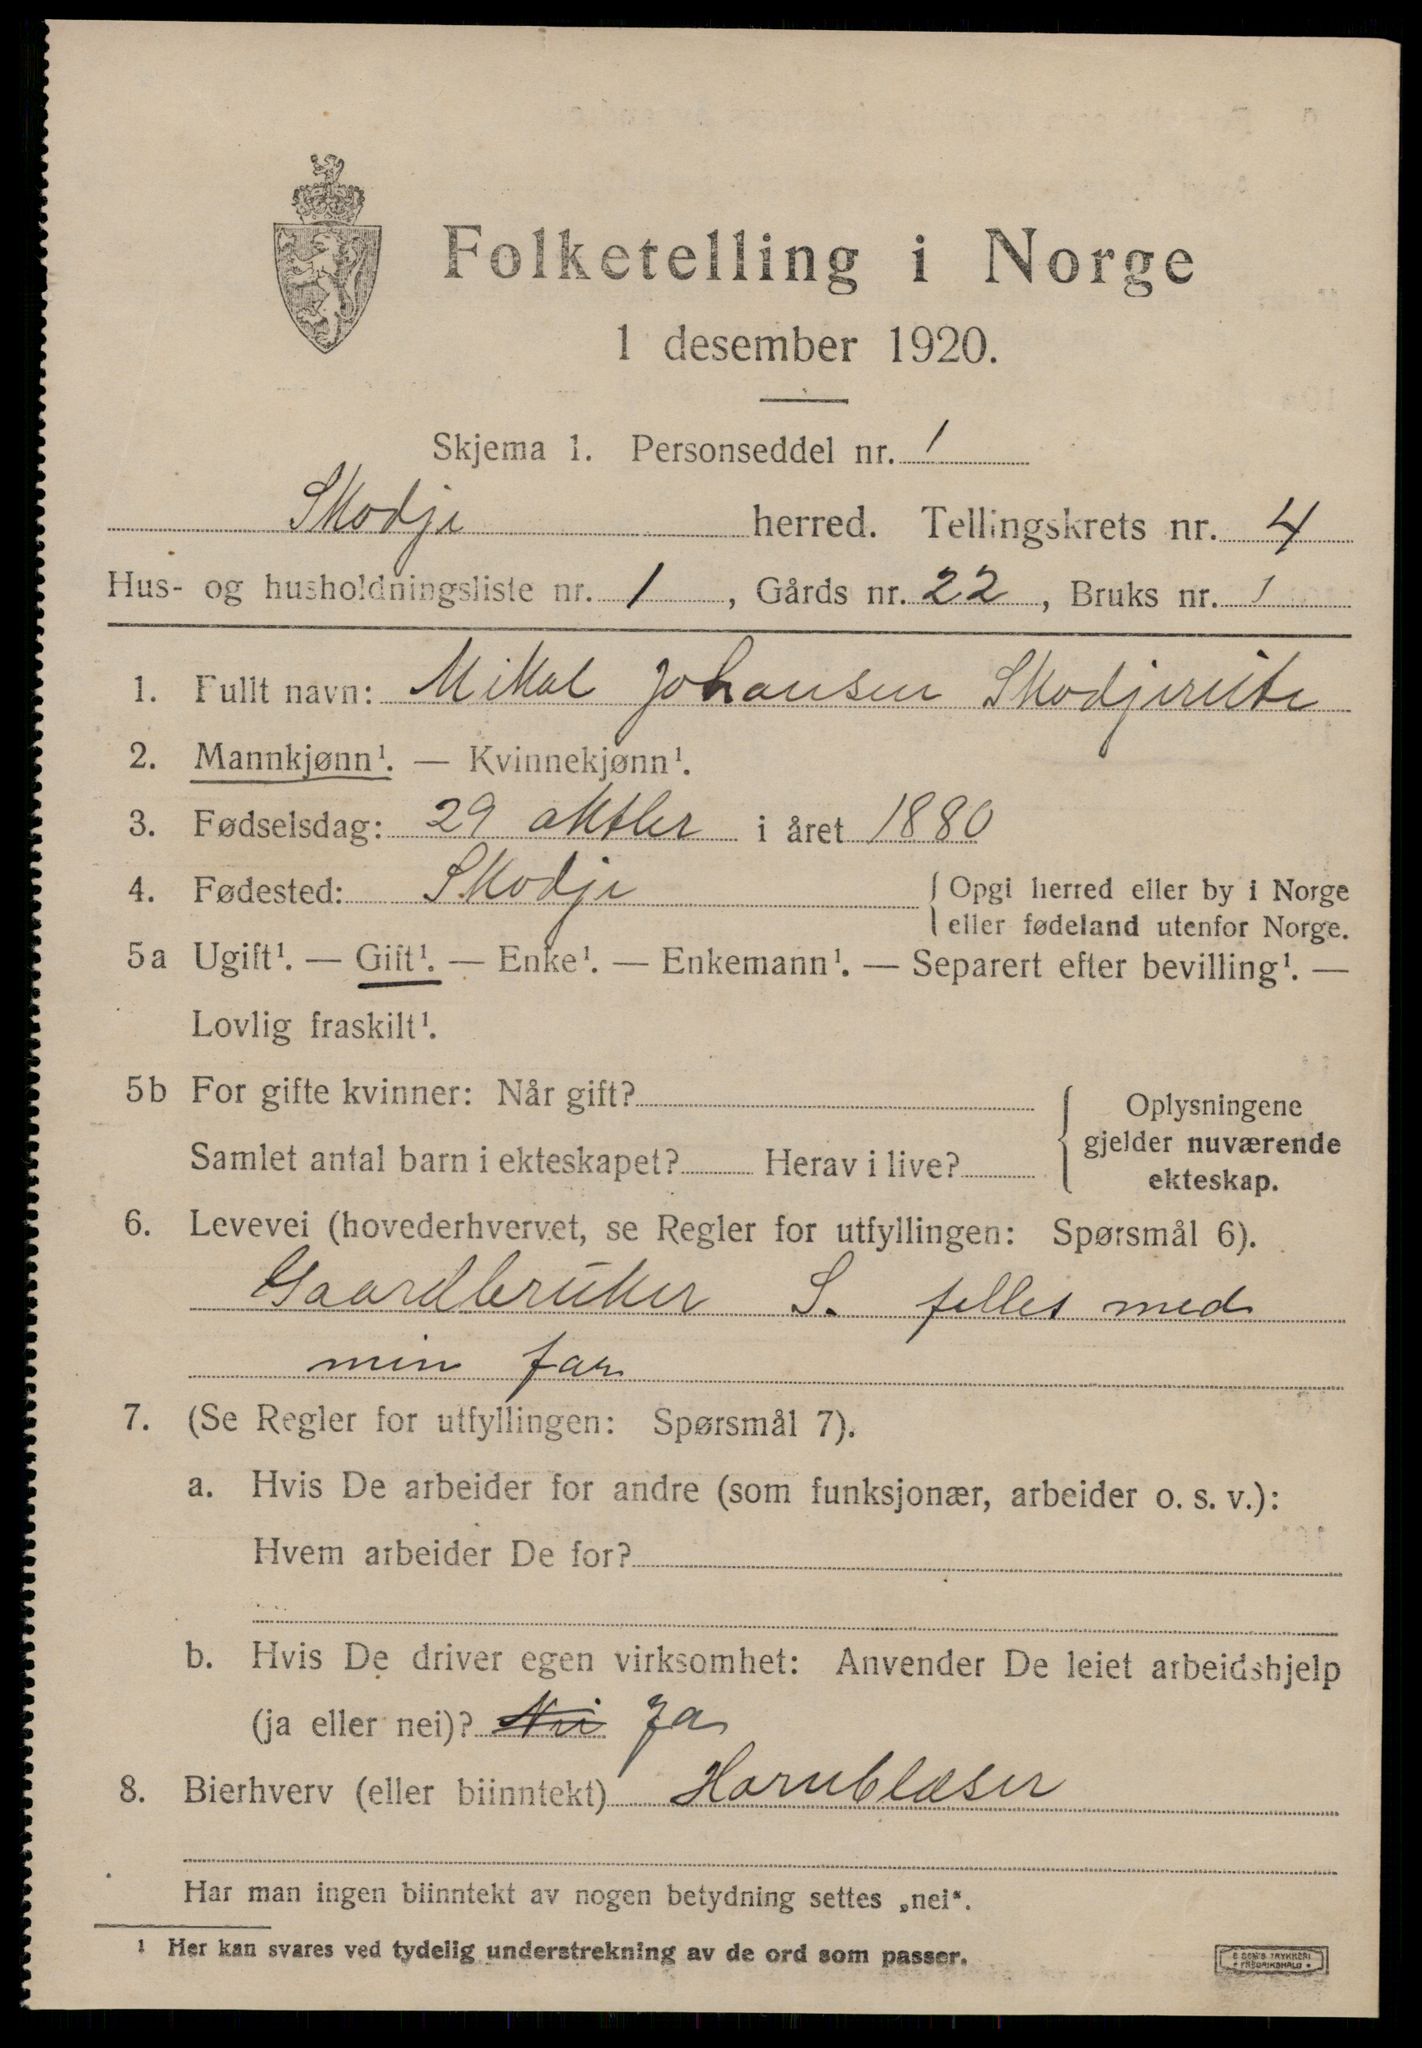 Folketelling i Norge
1 desember 1920.
Skjema 1. Personseddel nr. 1
Skodje herred. Tellingskrets nr. 4
Hus- og husholdningsliste nr. 1, Gårds nr. 22, Bruks nr. 1
1. Fullt navn: Mikal Johansen Skodjereite
2. Mannkjønn¹. — Kvinnekjønn¹.
3. Fødselsdag: 29 oktber i året 1880
4. Fødested: Skodje { Opgi herred eller by i Norge
eller fødeland utenfor Norge.
5a Ugift¹. — Gift¹. — Enke¹. — Enkemann¹. — Separert efter bevilling¹. —
Lovlig fraskilt¹.
5b For gifte kvinner: Når gift?
Samlet antal barn i ekteskapet? Herav i live?
{ Oplysningene
gjelder nuværende
ekteskap.
6. Levevei (hovederhvervet, se Regler for utfyllingen: Spørsmål 6).
Gaardbruker S. felles med
min far
7. (Se Regler for utfyllingen: Spørsmål 7).
a. Hvis De arbeider for andre (som funksjonær, arbeider o. s. v.):
Hvem arbeider De for?
b. Hvis De driver egen virksomhet: Anvender De leiet arbeidshjelp
(ja eller nei)? Nei Ja
8. Bierhverv (eller biinntekt) Hornblæser
Har man ingen biinntekt av nogen betydning settes „nei“.
¹ Her kan svares ved tydelig understrekning av de ord som passer.